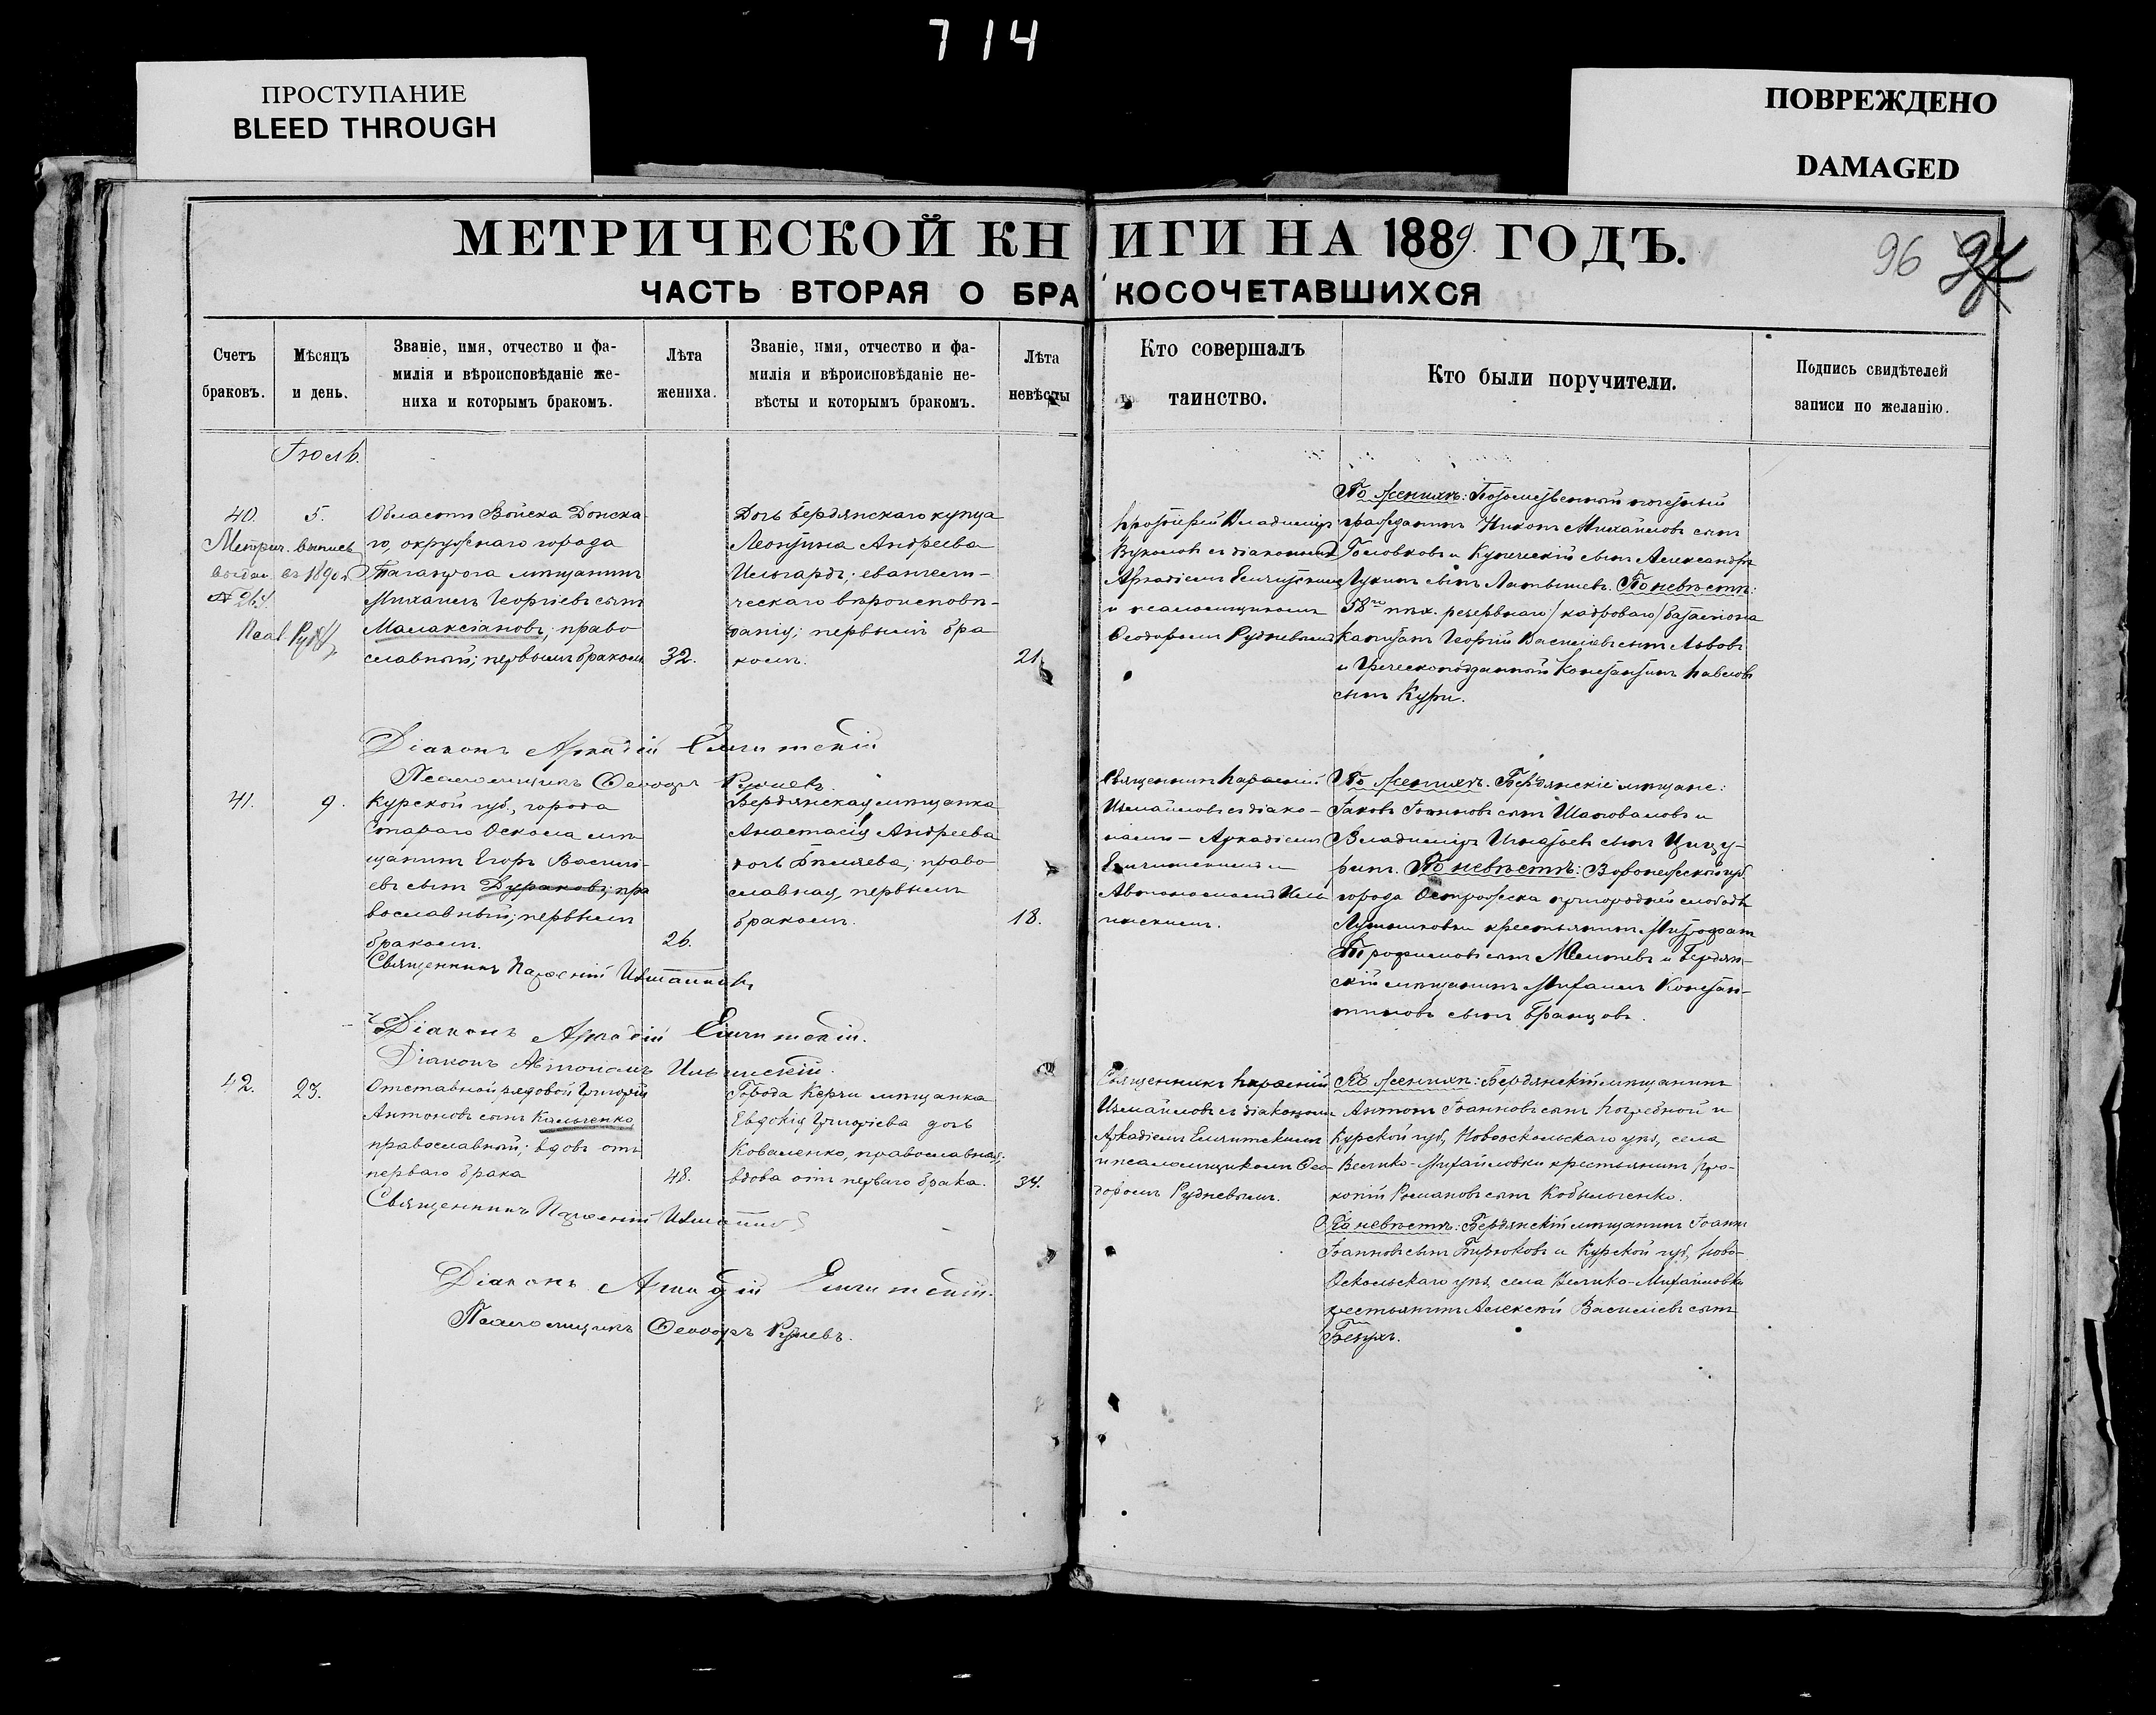 714
ПРОСТУПАНИЕ
BLEED THROUGH
ПОВРЕЖДЕНО
DAMAGED
МЕТРИЧЕСКОЙ КНИГИ НА 1889 ГОДЪ.
96 97
ЧАСТЬ ВТОРАЯ О БРАКОСОЧЕТАВШИХСЯ
Счетъ
браковъ.
Мѣсяцъ
и день.
Званіе, имя, отчество и фа-
милія и вѣроисповѣданіе же-
ниха и которымъ бракомъ.
Лѣта
жениха.
Званіе, имя, отчество и фа-
милія и вѣроисповѣданіе не-
вѣсты и которымъ бракомъ.
Лѣта
невѣсты
Кто совершалъ
таинство.
Кто были поручители.
Подпись свидѣтелей
записи по желанію.
Іюль.
40.
5.
Метрич. выпись
выдан въ 1890 г
№ 264.
Псал.
Области Войска Донска-
го, окружнаго города
Таганрога мѣщанинъ
Михаилъ Георгіевъ сынъ
Малаксіановъ; право
славный; первымъ бракомъ
32.
Дочь бердянскаго купца
Леонтина Андреева
Ильгардъ; евангели-
ческаго вѣроисповѣ-
данія; первымъ бра
комъ.
21.
Протоіерей Владиміръ
Вуколовъ съ діакономъ
Аркадіемъ Елчитскимъ
и псаломщикомъ
Ѳеодоромъ Рудневымъ
По женихѣ: Потомственный почетный
гражданинъ Никонъ Михайловъ сынъ
Головковъ и Купеческій сынъ Александръ
Лукинъ сынъ Латышевъ. По невѣстѣ:
58го пѣх. резервнаго /кадроваго/ баталіона
Капитанъ Георгій Васильевъ сынъ Львовъ
и Греческоподданный Константинъ Павловъ
сынъ Кури.
Діаконъ Аркадій Елчитскій
Псаломщикъ Ѳеодоръ Рудневъ.
41.
9.
Курской губ., города
Стараго Оскола мѣ-
щанинъ Егоръ Василь-
евъ сынъ Дураковъ; пра
вославный; первымъ
бракомъ.
26.
Бердянская мѣщанка
Анастасія Андреева
дочь Бѣляева, право-
славная, первымъ
бракомъ.
18.
Священникъ Парѳеній
Измайловъ съ діако-
нами - Аркадіемъ
Елчитскимъ и
Автономомъ Иль
инскимъ.
По женихѣ. Бердянскіе мѣщане:
Іаковъ Іоанновъ сынъ Шаповаловъ и
Владиміръ Игнатьевъ сынъ Цицу-
ринъ. По невѣстѣ: Воронежской губ
города Острожска пригородней слободы
Лушниковки крестьянинъ Митрофанъ
Трофимовъ сынъ и Бердян-
скій мѣщанинъ Михаилъ Констан-
тиновъ сынъ Бранцовъ.
Священникъ Парѳеній Измайловъ
Діаконъ Аркадій Елчитскій.
Діаконъ Автономъ Ильинскій.
42.
23.
Отставной рядовой Григорій
Антоновъ сынъ Кальченко
православный; вдовъ отъ
перваго брака
48.
Города Керчи мѣщанка
Евдокія Григоріева дочь
Коваленко, православная;
вдова отъ перваго брака.
34.
Священникъ Парѳеній
Измайловъ съ діакономъ
Аркадіемъ Елчитскимъ
и псаломщикомъ Ѳео-
доромъ Рудневымъ.
По женихѣ: Бердянскій мѣщанинъ
Антонъ Іоанновъ сынъ Погребной и
Курской губ., Новооскольскаго уѣз., села
Велико-Михайловки крестьянинъ Про-
копій Романовъ сынъ Кобыльченко.
По невѣстѣ: Бердянскій мѣщанинъ Іоаннъ
Іоанновъ сынъ Бирюковъ и Курской губ., Ново-
Оскольскаго уѣз. села Велико-Михайловки
крестьянинъ Алексѣй Васильевъ сынъ
Священникъ Парѳеній Измайловъ
Діаконъ Аркадій Елчитскій.
Псаломщикъ Ѳеодоръ Рудневъ.